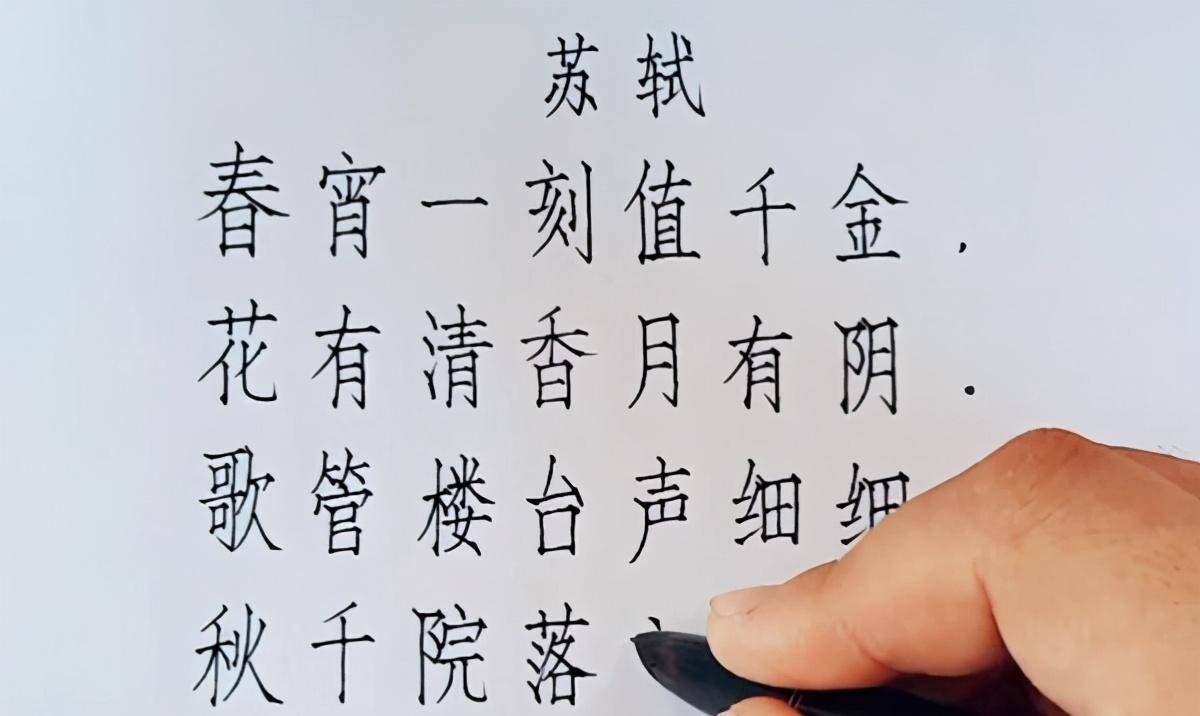 苏轼
春宵一刻值千金，
花有清香月有阴．
歌管楼台声细细
秋千院落